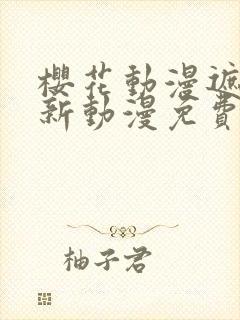 櫻花動漫遮
新動漫免費
柚子君